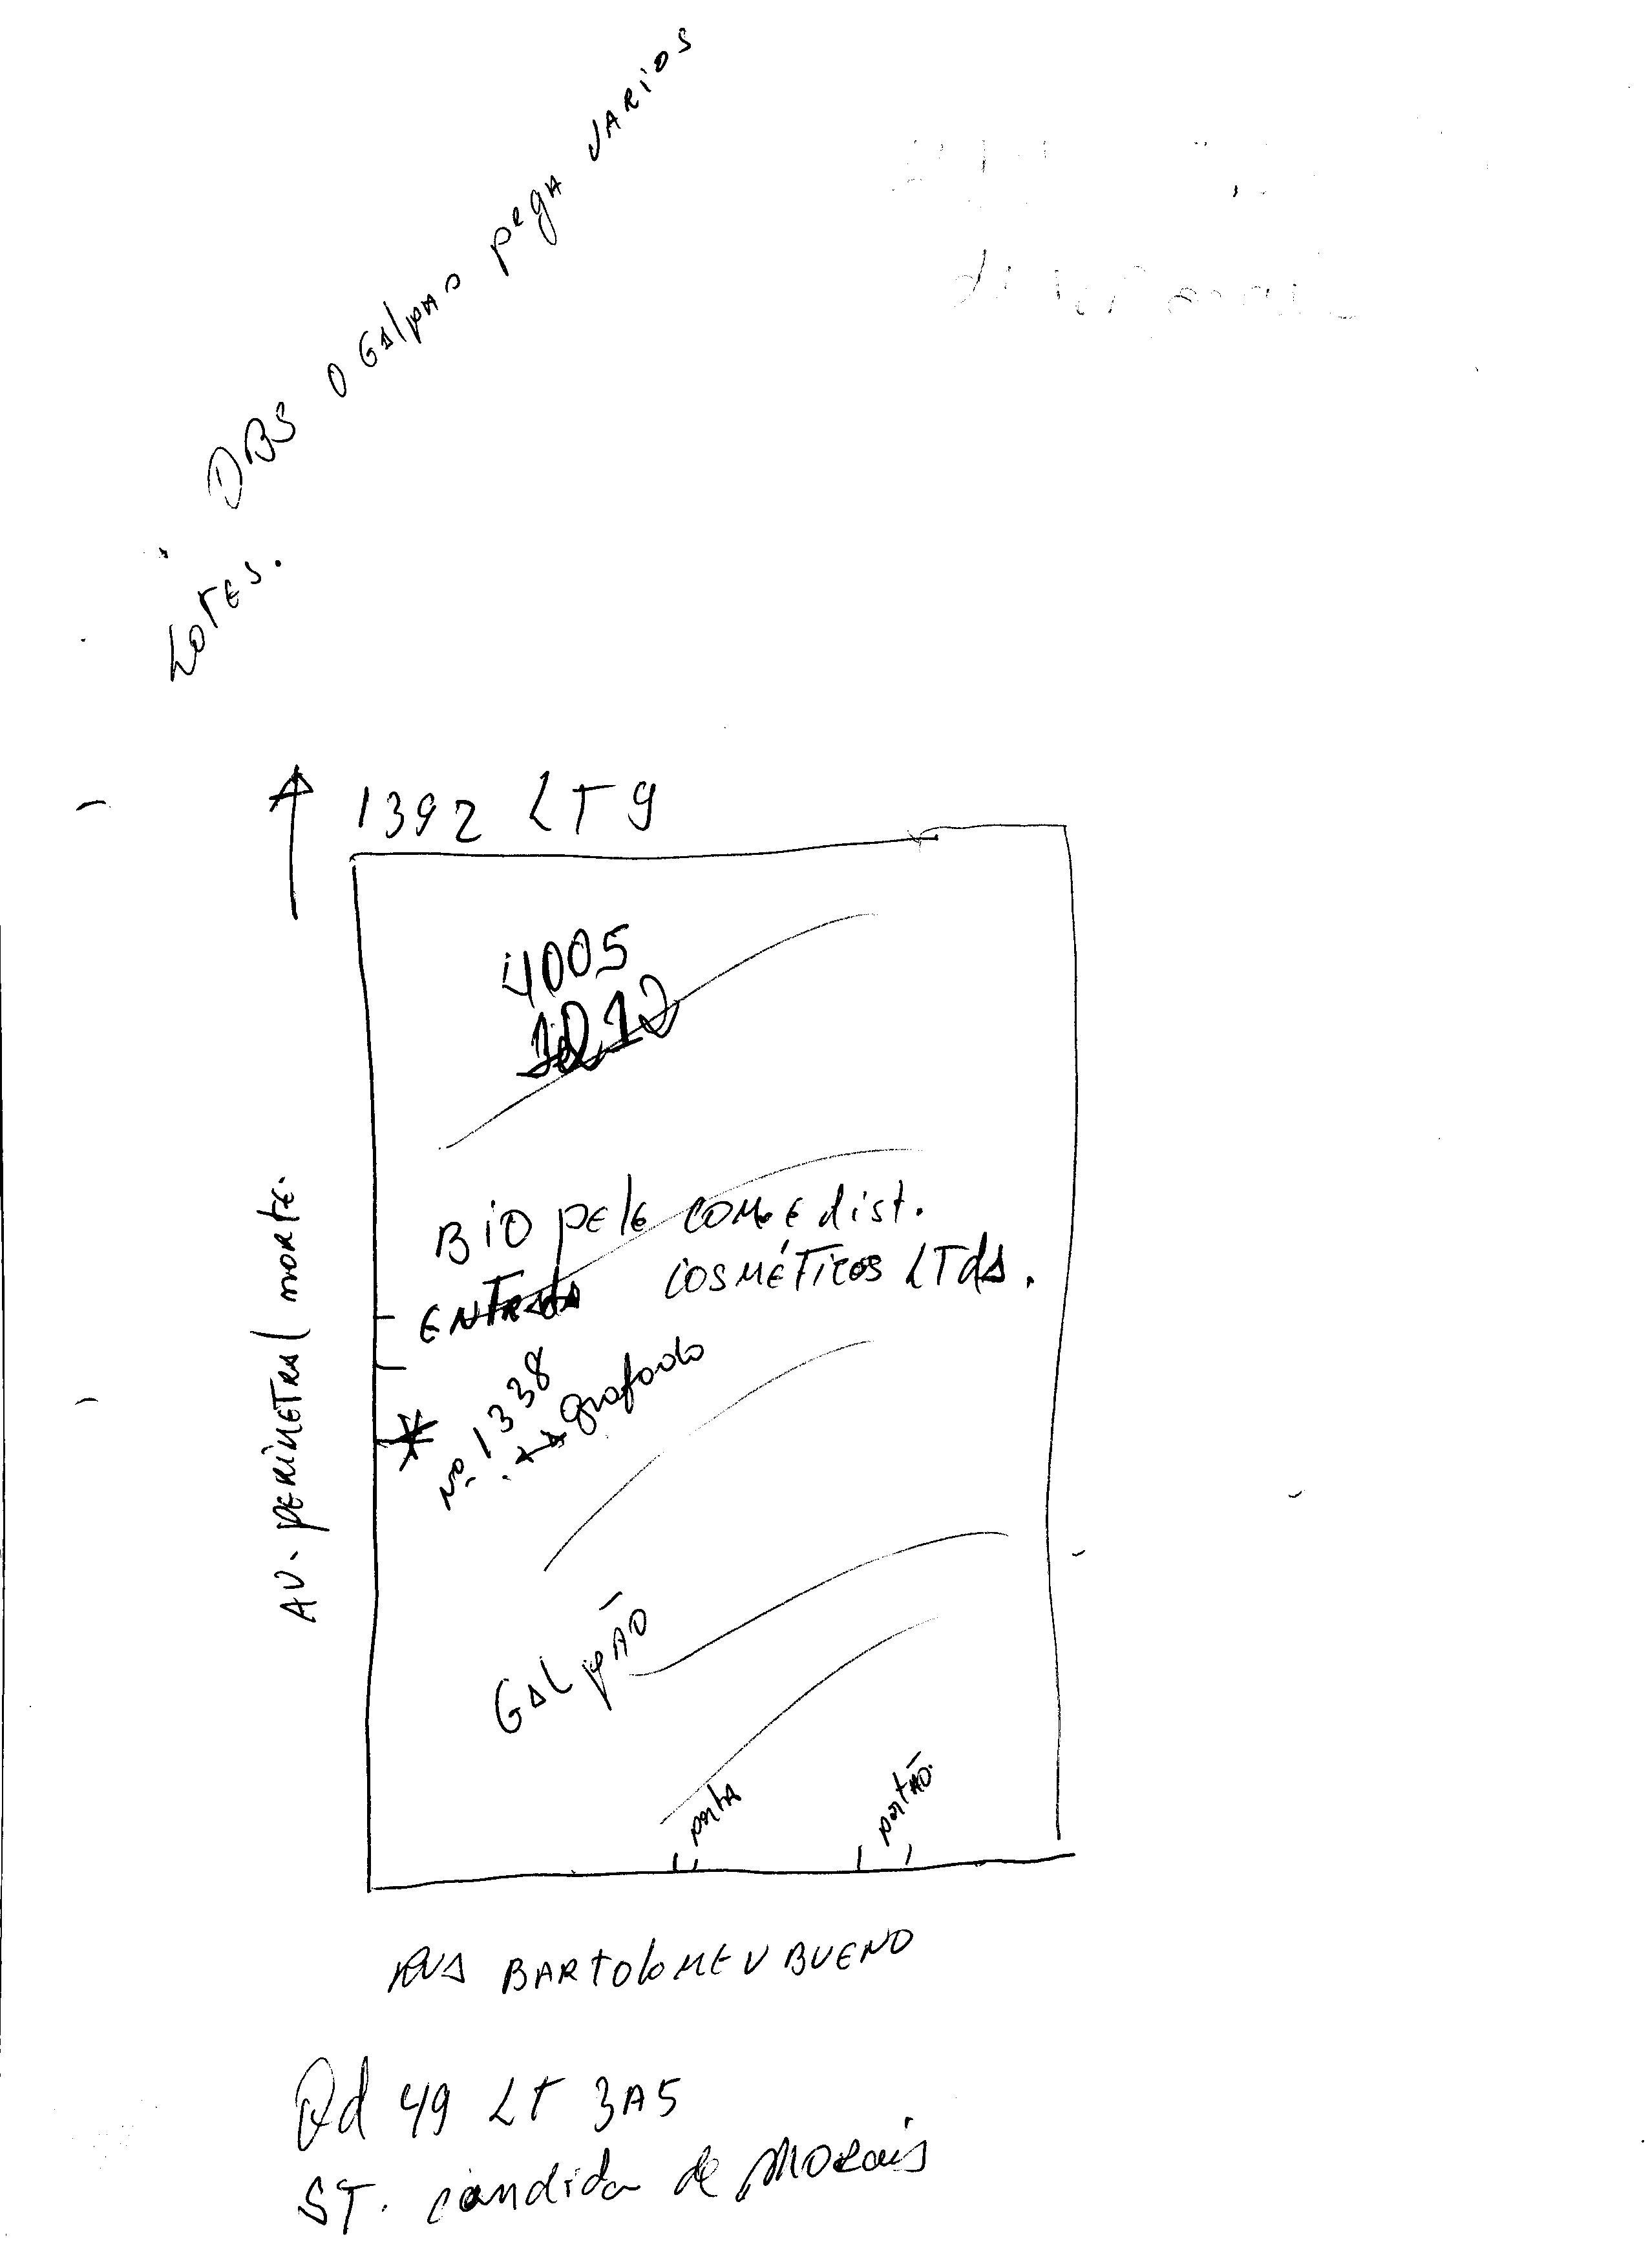 OBS O GAlpAO pegA VARIOS
LOTES.
1392 LT 9
4005
BIO pele COM. E dist.
COSMÉTICOS LTdA.
ENTRADA
Nº 1338
grafado
AV. PERIMETRAL NORTE.
GALpÃO
portA
portÃO.
RUA BARTOLOMEU BUENO
Qd 49 LT 3A5
ST. candida de MORAis